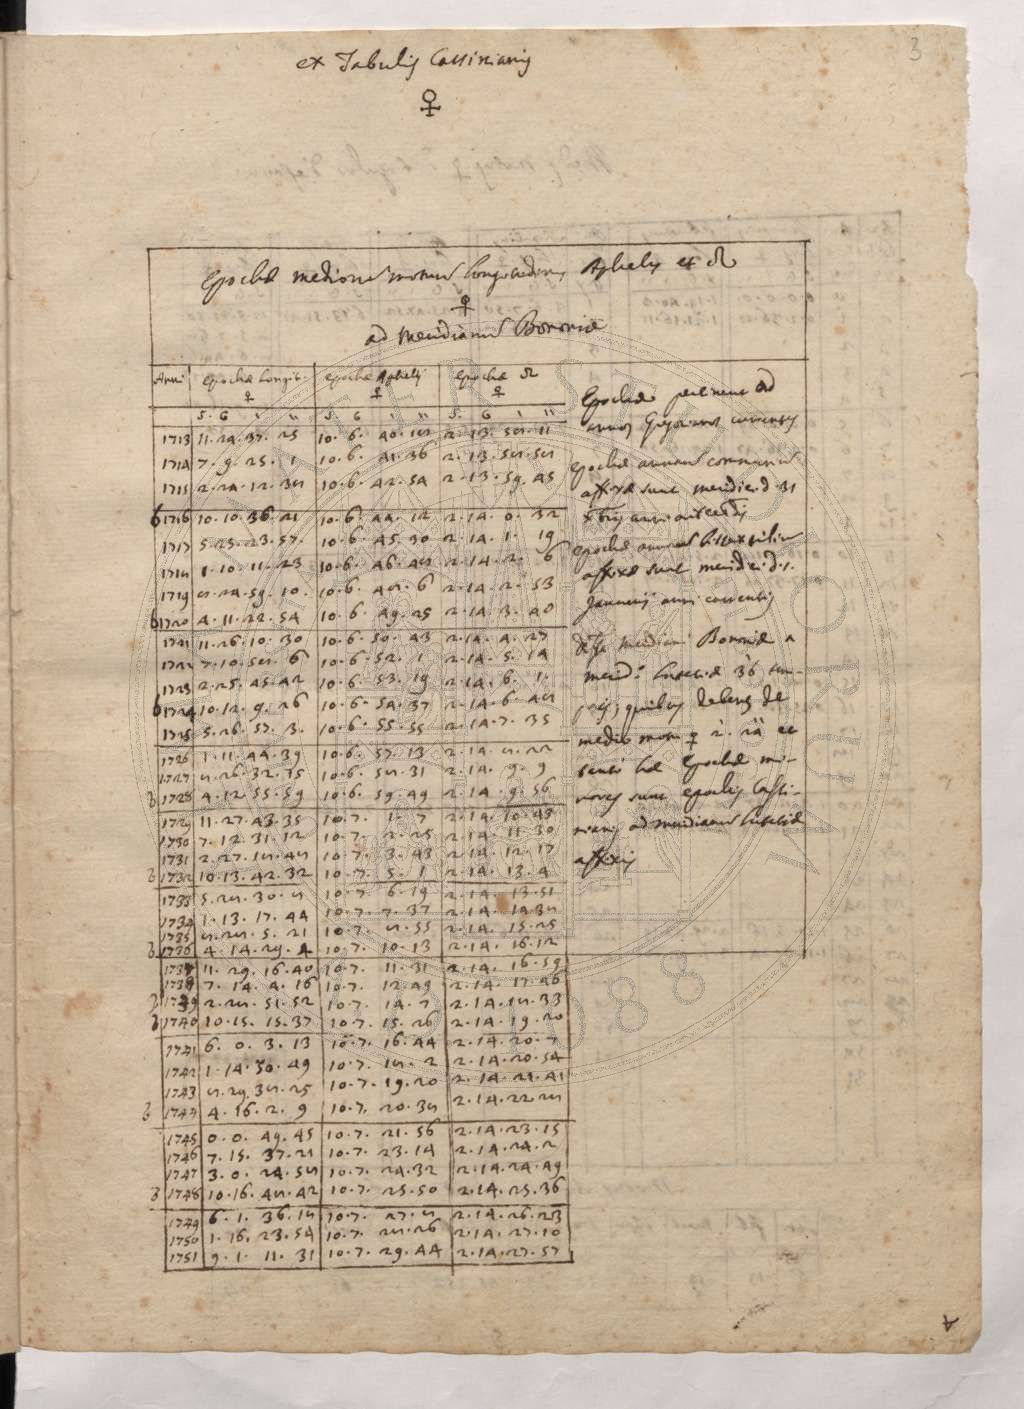 3
ex Tabulis Cassinianis
♀
Epochæ mediorum motuum longitudinis Aphelij et ☊
♀
ad Meridianum Bononiæ
Anni Epochæ Longit. ♀ Epochæ Aphelij ♀ Epochæ ☊ ♀
S. G ' '' S. G ' '' S. G ' ''
1713 11.24.37.25 10.6.40.18 2.13.58.11
1714 7.9.25.1 10.6.41.36 2.13.58.58
1715 2.24.12.38 10.6.42.54 2.13.59.45
b 1716 10.10.36.21 10.6.44.12 2.14.0.32
1717 5.25.23.57. 10.6.45.30 2.14.1.19
1718 1.10.11.33 10.6.46.48 2.14.2.6
1719 8.24.59.10. 10.6.48.6 2.14.2.53
b 1720 4.11.22.54 10.6.49.25 2.14.3.40
1721 11.26.10.30 10.6.50.43 2.14.4.27
1722 7.10.58.6 10.6.52.1 2.14.5.14
1723 2.25.45.42 10.6.53.19 2.14.6.1.
b 1724 10.12.9.26 10.6.54.37 2.14.6.48
1725 5.26.57.3. 10.6.55.55 2.14.7.35
1726 1.11.44.39 10.6.57.13 2.14.8.22
1727 8.26.32.15 10.6.58.31 2.14.9.9
b 1728 4.12.55.59 10.6.59.49 2.14.9.56
1729 11.27.43.35 10.7.1.7 2.14.10.43
1730 7.12.31.12 10.7.2.25 2.14.11.30
1731 2.27.18.48 10.7.3.43 2.14.12.17
b 1732 10.13.42.32 10.7.5.1 2.14.13.4
1733 5.28.30.8 10.7.6.19 2.14.13.51
1734 1.13.17.44 10.7.7.37 2.14.14.38
1735 8.28.5.21 10.7.8.55 2.14.15.25
b 1736 4.14.29.4 10.7.10.13 2.14.16.12
1737 11.29.16.40 10.7.11.31 2.14.16.59
1738 7.14.4.16 10.7.12.49 2.14.17.46
1739 2.28.51.52 10.7.14.7 2.14.18.33
b 1740 10.15.15.37 10.7.15.26 2.14.19.20
1741 6.0.3.13 10.7.16.44 2.14.20.7
1742 1.14.50.49 10.7.18.2 2.14.20.54
1743 8.29.38.25 10.7.19.20 2.14.21.41
b 1744 4.16.2.9 10.7.20.38 2.14.22.28
1745 0.0.49.45 10.7.21.56 2.14.23.15
1746 7.15.37.21 10.7.23.14 2.14.24.2
1747 3.0.24.58 10.7.24.32 2.14.24.49
b 1748 10.16.48.42 10.7.25.50 2.14.25.36
1749 6.1.36.18 10.7.27.8 2.14.26.23
1750 1.16.23.54 10.7.28.26 2.14.27.10
1751 9.1.11.31 10.7.29.44 2.14.27.57
Epochæ pertinent ad
annos Gregorianos currentes
Epochæ annorum communium
affixæ sunt meridiei d. 31
Xbris anni antecedtis
Epochæ annorum bissextilium
affixæ sunt meridiei d. 1.
Januarij anni currentis
meridiani Bononiæ a
merid.º Lutetiæ 36 tem-
poris, quibus debetur de
medio motu ♀ 2'. 24'' et
hæ Epochæ mi-
nores sunt epochis Cassi-
nianis ad meridianum Lutetiæ
affixis